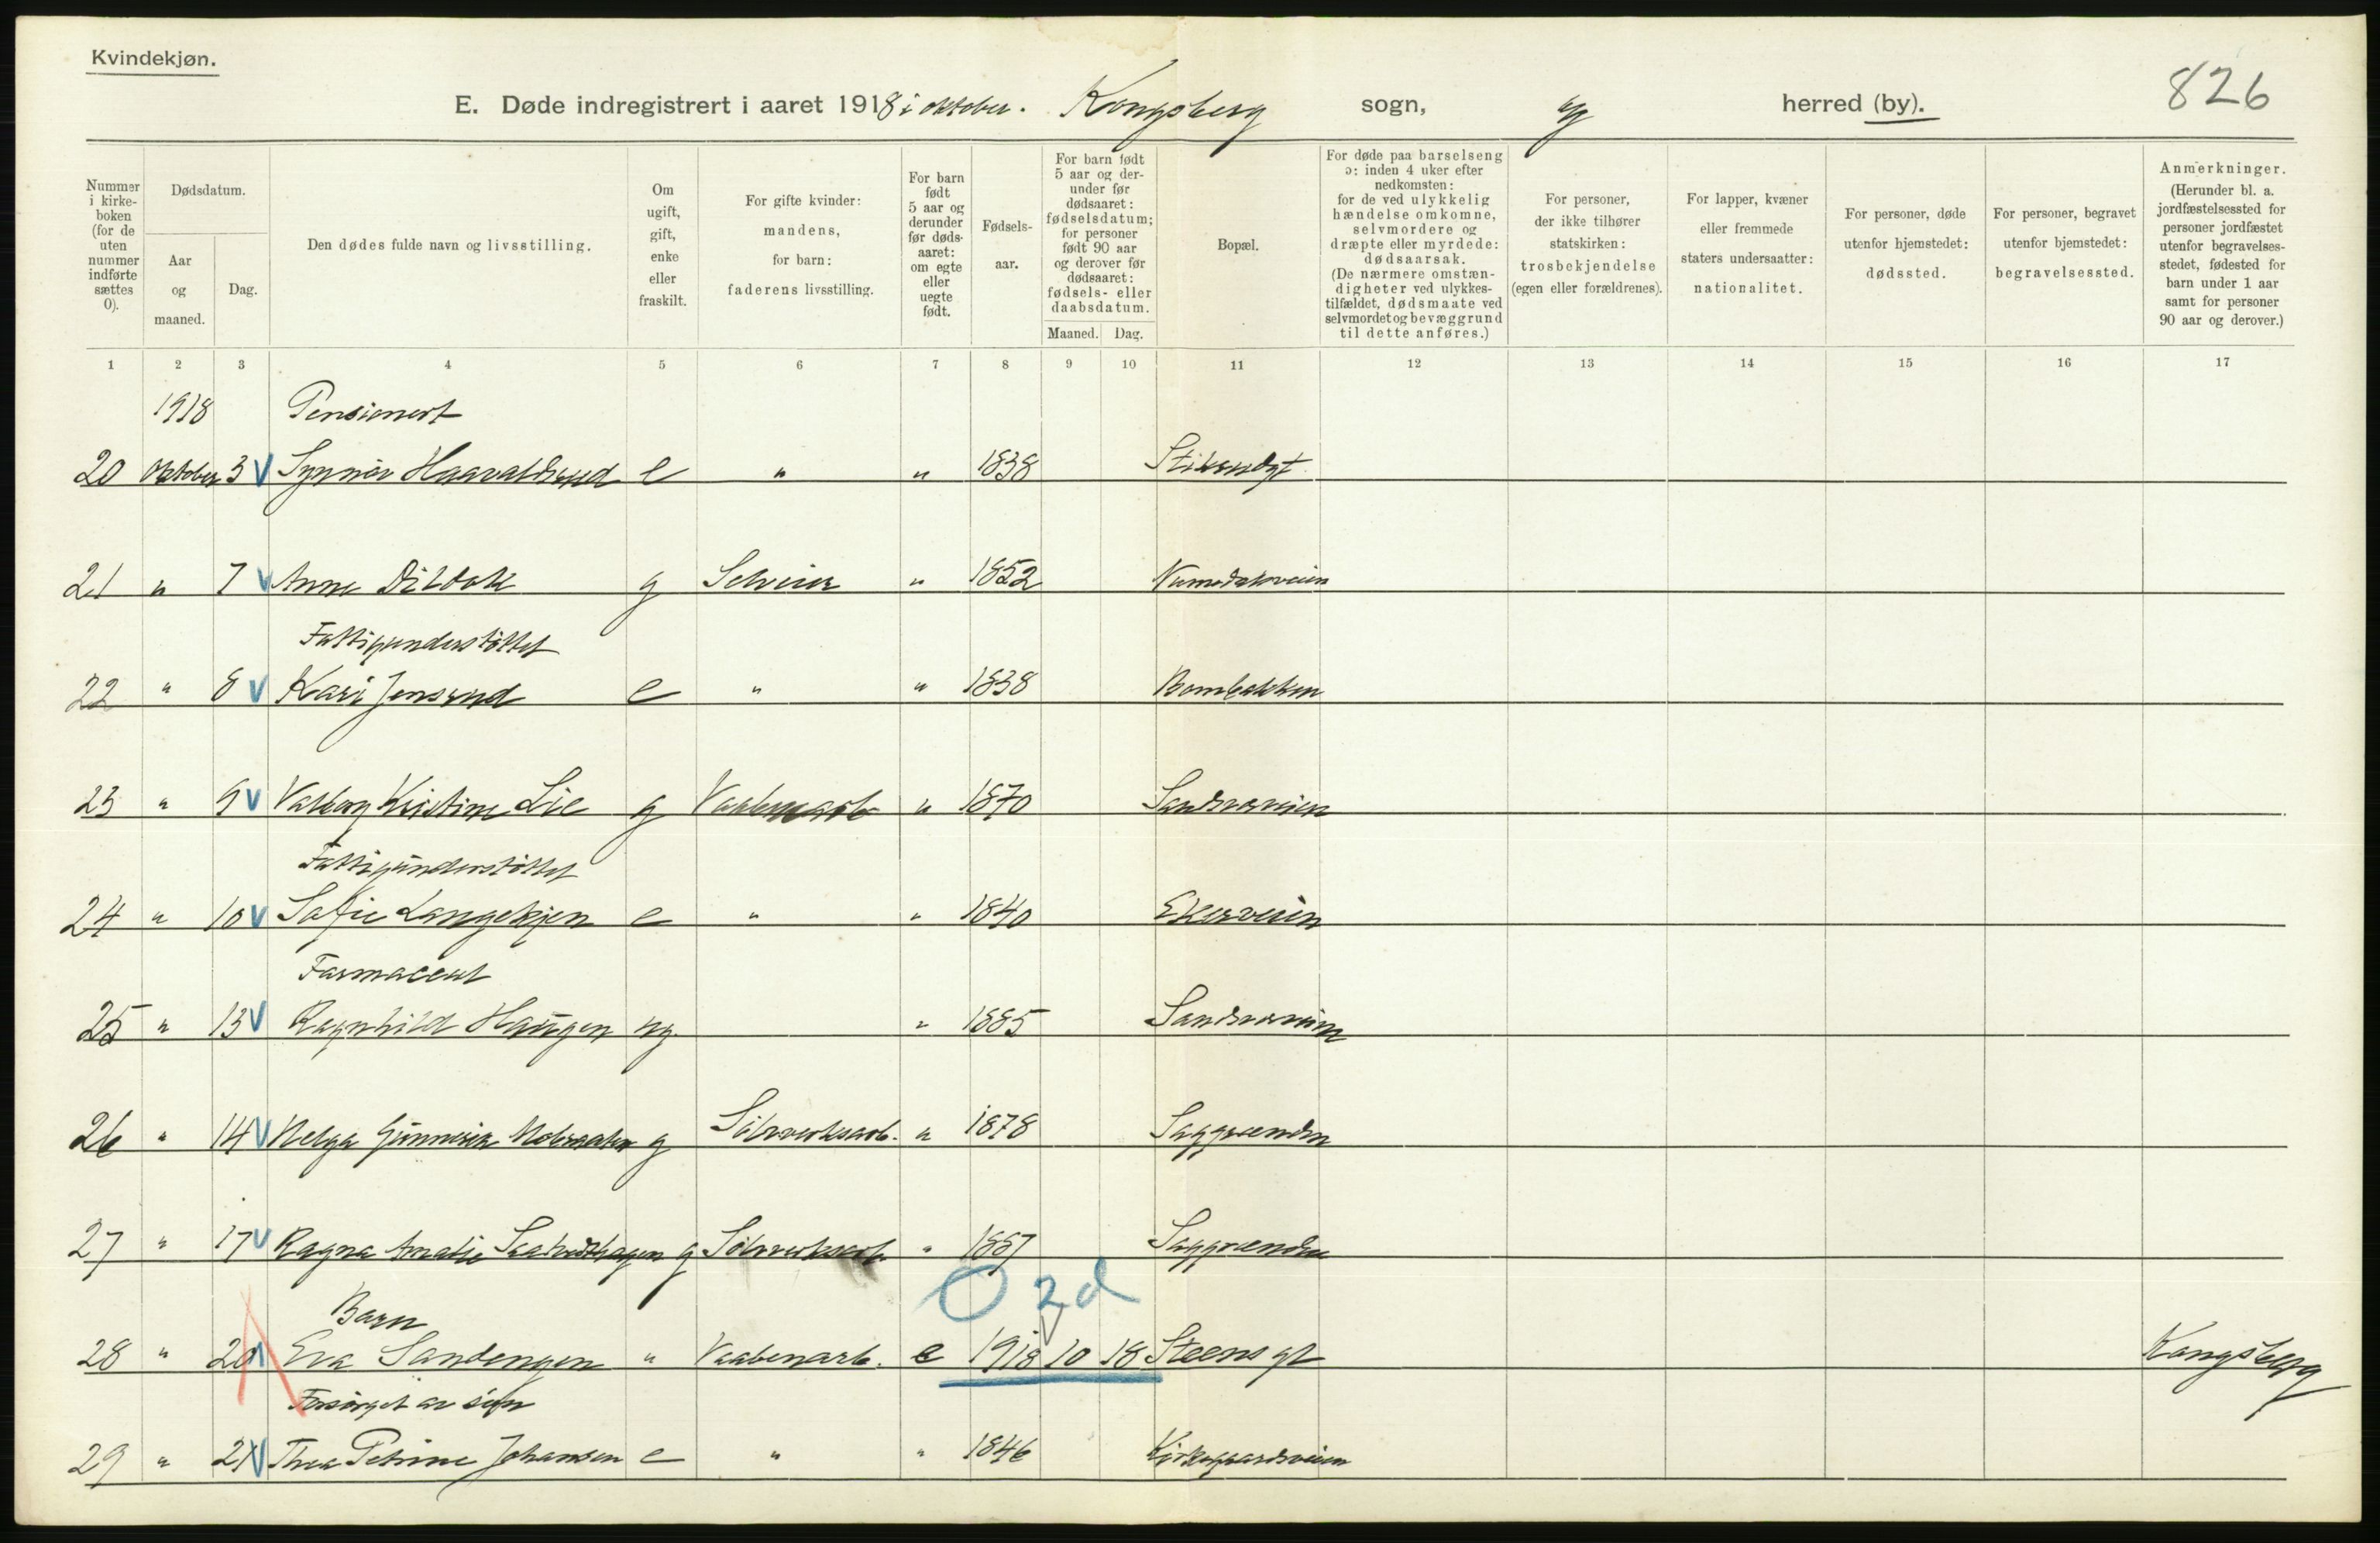 Kvindekjøn.
826
E. Døde indregistrert i aaret 1918 i oktober. Kongsberg sogn, by herred (by).
Nummer i kirke- boken (for de uten nummer indførte sættes 0).
Dødsdatum.
Aar og maaned.
Dag.
Den dødes fulde navn og livsstilling.
Om ugift, gift, enke eller fraskilt.
For gifte kvinder: mandens, for barn: faderens livsstilling.
For barn født 5 aar og derunder før døds- aaret: om egte eller uegte født.
Fødsels- aar.
For barn født 5 aar og der- under før dødsaaret: fødselsdatum; for personer født 90 aar og derover før dødsaaret: fødsels- eller daabsdatum.
Maaned. Dag.
Bopæl.
For døde paa barselseng ɔ: inden 4 uker efter nedkomsten: for de ved ulykkelig hændelse omkomne, selvmordere og dræpte eller myrdede: dødsaarsak. (De nærmere omstæn- digheter ved ulykkes- tilfældet, dødsmaate ved selvmordet og bevæggrund til dette anføres.)
For personer, der ikke tilhører statskirken: trosbekjendelse (egen eller forældrenes).
For lapper, kvæner eller fremmede staters undersaatter: nationalitet.
For personer, døde utenfor hjemstedet: dødssted.
For personer, begravet utenfor hjemstedet: begravelsessted.
Anmerkninger. (Herunder bl. a. jordfæstelsessted for personer jordfæstet utenfor begravelses- stedet, fødested for barn under 1 aar samt for personer 90 aar og derover.)
1 2 3 4 5 6 7 8 9 10 11 12 13 14 15 16 17
1918 Pensionert
20 Oktober 3 V Synnöv Haavaldsrud e " " 1838
21 " 7 V Anne g " 1852 Numedalsveien
Fattigunderstöttet
22 " 8 V Kari Jensrud e " " 1838 Bombakken
23 " 9 V Valborg Kristine Lie g Vaabenarb " 1870 Sandsværveien
Fattigunderstöttet
24 " 10 V Sofie Langekjen e " " 1840 Ekerveien
Farmaceut
25 " 13 V Ragnhild Haugen ug. " 1885 Sandsværveien
26 " 14 V Helga g Sölvverksarb. " 1878 Saggrænden
27 " 17 V Ragna Amalie g Sölvverksarb. " 1887 Saggrænden
0 2 d
Barn
28 " 20 Eva Sandengen " Vaabenarb. e 1918 10 18 Steens gt Kongsberg
Forsörget av sön
29 " 21 V Thea Petrine Johansen e " " 1846 Kirkegaardsveien